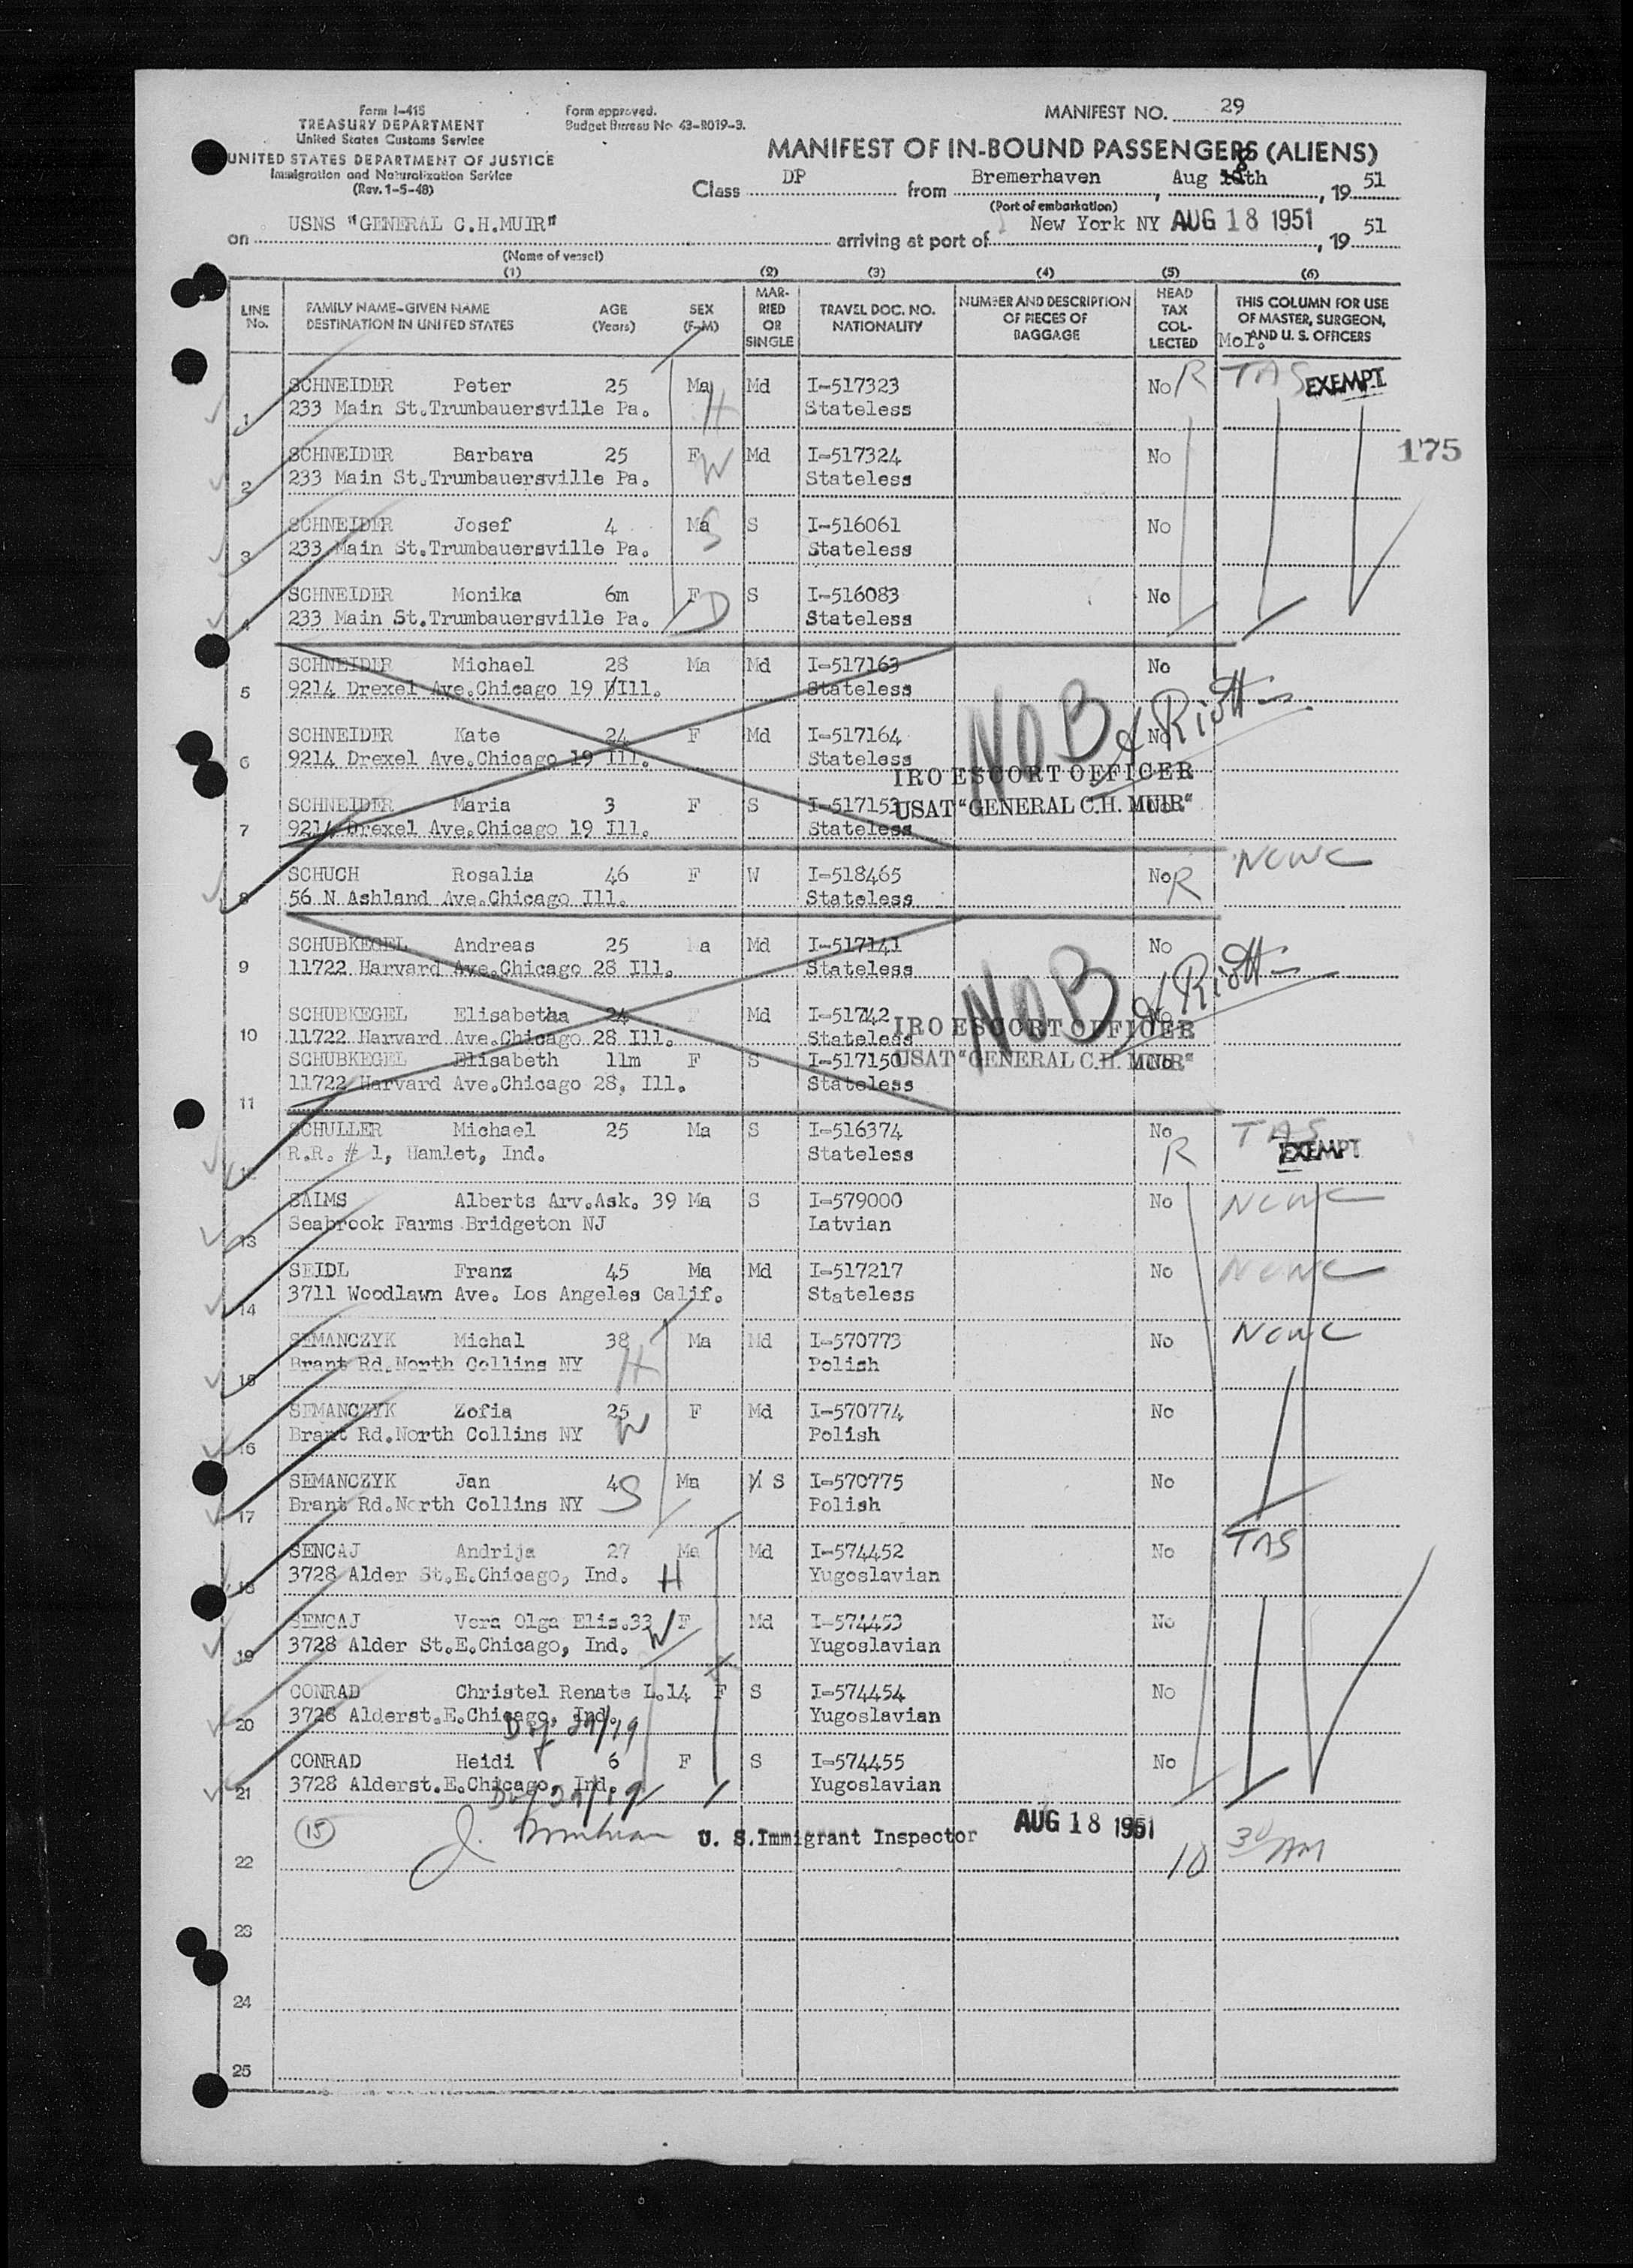 Form I-415
TREASURY DEPARTMENT
United States Customs Service
UNITED STATES DEPARTMENT OF JUSTICE
Immigration and Naturalization Service
(Rev. 1-5-48)
Form approved.
Budget Bureau No 43-R019-3.
MANIFEST NO. 29
MANIFEST OF IN-BOUND PASSENGERS (ALIENS)
Class DP from Bremerhaven, Aug 8th, 19 51
(Port of embarkation)
on USNS "GENERAL C.H.MUIR" arriving at port of New York NY AUG 18 1951, 19 51
(Name of vessel)
(1) (2) (3) (4) (5) (6)
LINE No. FAMILY NAME-GIVEN NAME DESTINATION IN UNITED STATES AGE (Years) SEX (F-M) MARRIED OR SINGLE TRAVEL DOC. NO. NATIONALITY NUMBER AND DESCRIPTION OF PIECES OF BAGGAGE HEAD TAX COLLECTED THIS COLUMN FOR USE OF MASTER, SURGEON, AND U. S. OFFICERS
Mor.
SCHNEIDER Peter 25 Ma H Md I-517323 No R TAS EXEMPT
1 233 Main St.Trumbauersville Pa. Stateless
175
SCHNEIDER Barbara 25 F W Md I-517324 No
2 233 Main St.Trumbauersville Pa. Stateless
SCHNEIDER Josef 4 Ma S S I-516061 No
3 233 Main St.Trumbauersville Pa. Stateless
SCHNEIDER Monika 6m F D S I-516083 No
4 233 Main St.Trumbauersville Pa. Stateless
SCHNEIDER Michael 28 Ma Md I-517163 No
5 9214 Drexel Ave.Chicago 19 Ill. Stateless
SCHNEIDER Kate 24 F Md I-517164 No B No
6 9214 Drexel Ave.Chicago 19 Ill. Stateless
IRO ESCORT OFFICER
SCHNEIDER Maria 3 F S I-517153 USAT "GENERAL C.H. MUIR"
7 9214 Drexel Ave.Chicago 19 Ill. Stateless
SCHUCH Rosalia 46 F W I-518465 No R NCWC
8 56 N Ashland Ave.Chicago Ill. Stateless
SCHUBKEGEL Andreas 25 Ma Md I-517141 No
9 11722 Harvard Ave.Chicago 28 Ill. Stateless
SCHUBKEGEL Elisabetha 24 F Md I-517142 No B No
10 11722 Harvard Ave.Chicago 28 Ill. Stateless
IRO ESCORT OFFICER
SCHUBKEGEL Elisabeth 11m F S I-517150 USAT "GENERAL C.H. MUIR" No
11 11722 Harvard Ave.Chicago 28, Ill. Stateless
SCHULLER Michael 25 Ma S I-516374 No R TAS EXEMPT
12 R.R. # 1, Hamlet, Ind. Stateless
SAIMS Alberts Arv.Ask. 39 Ma S I-579000 No NCWC
13 Seabrook Farms Bridgeton NJ Latvian
SEIDL Franz 45 Ma Md I-517217 No NCWC
14 3711 Woodlawn Ave. Los Angeles Calif. Stateless
SEMANCZYK Michal 38 H Ma Md I-570773 No NCWC
15 Brant Rd.North Collins NY Polish
SEMANCZYK Zofia 25 W F Md I-570774 No
16 Brant Rd.North Collins NY Polish
SEMANCZYK Jan 4 S Ma S I-570775 No
17 Brant Rd.North Collins NY Polish
SENCAJ Andrija 27 Ma Md I-574452 No TAS
18 3728 Alder St.E.Chicago, Ind. H Yugoslavian
SENCAJ Vera Olga Elis.33 W F Md I-574453 No
19 3728 Alder St.E.Chicago, Ind. Yugoslavian
CONRAD Christel Renate L.14 F S I-574454 No
20 3728 Alderst.E.Chicago, Ind. Yugoslavian
CONRAD Heidi 6 F S I-574455 No
21 3728 Alderst.E.Chicago, Ind. Yugoslavian
15 U. S.Immigrant Inspector AUG 18 1951 10 30 AM
22
23
24
25